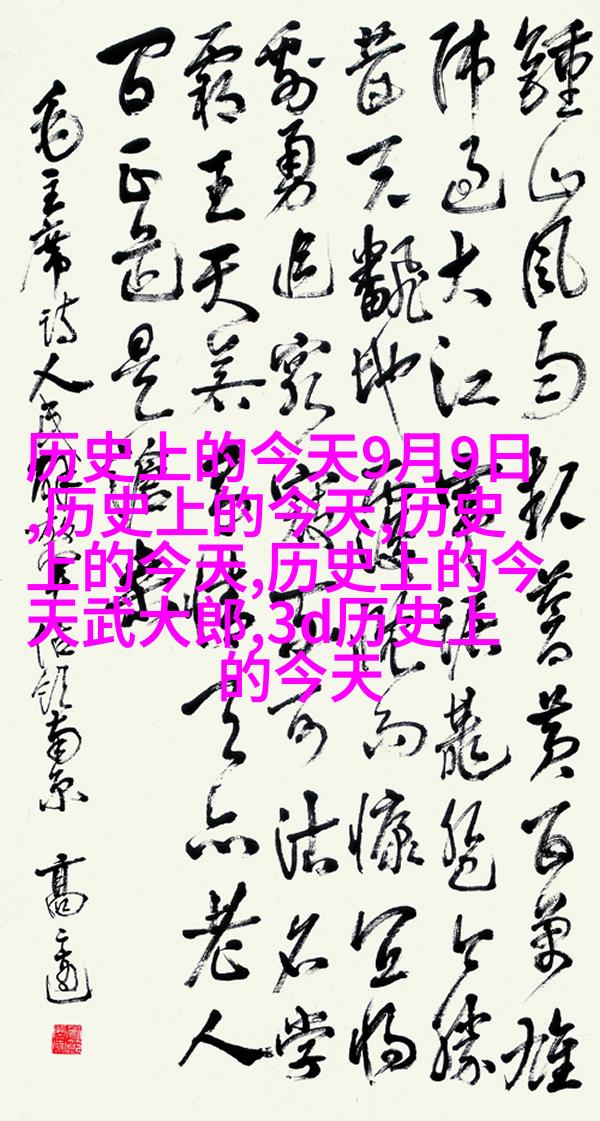 鍾山风雨起蒼黄百万雄
师过大江虎踞龍盘今胜
昔天翻地覆慨而慷宜将
剩勇追穷寇不可沽名学
霸王天若有情天亦老人
间正道是沧桑
毛主席诗人民解放军占领南京 高
历史上的今天9月9日
,历史上的今天,历史
上的今天,历史上的今
天武大郎,3d历史上
的今天